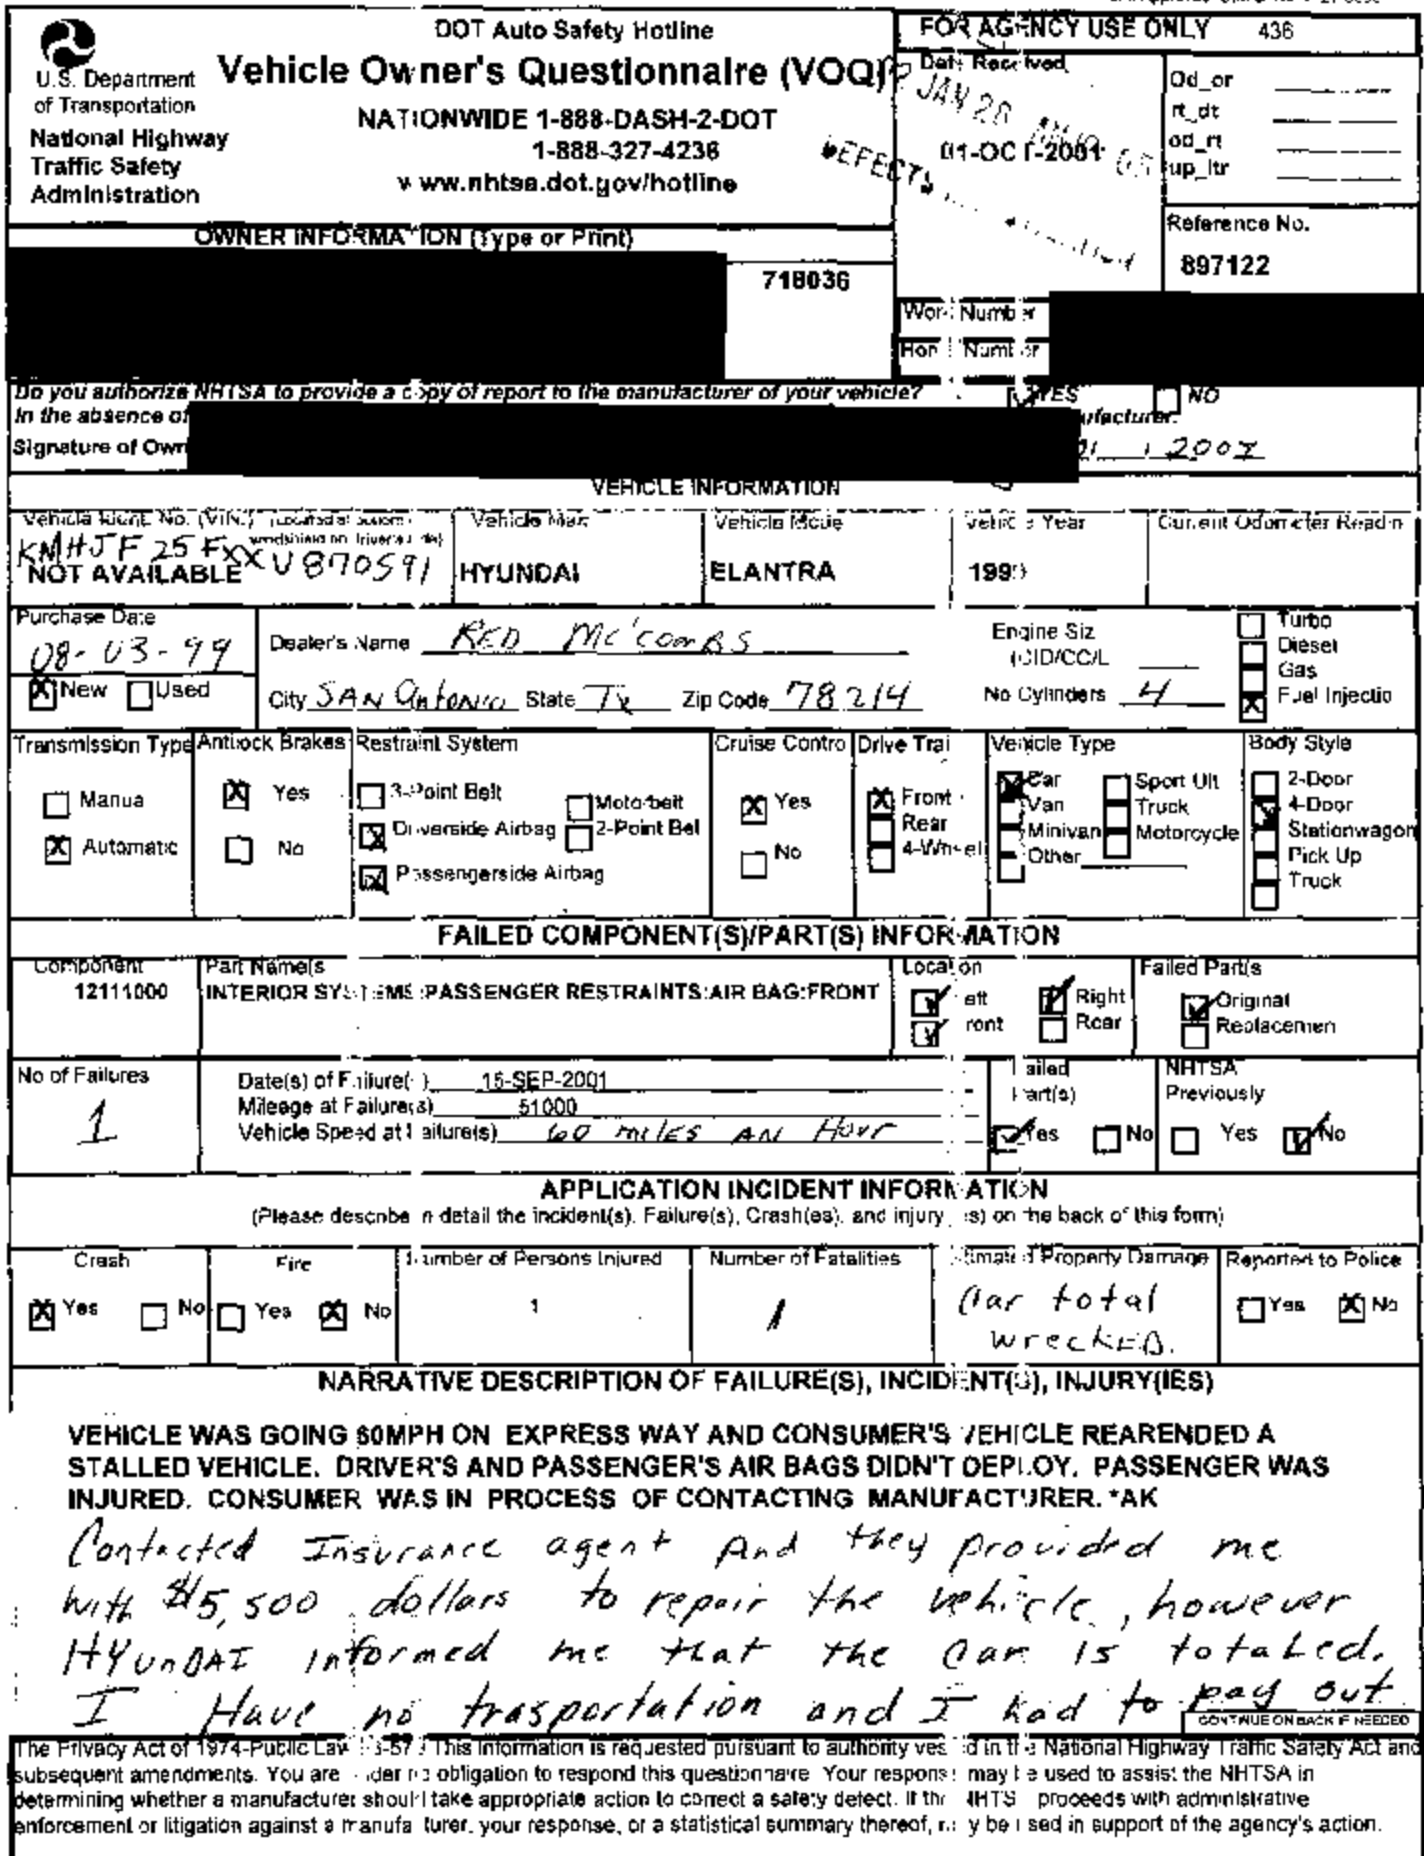 DOT Auto Safety Hotline
Vehicle Owner's Questionnaire (VOQ)
NATIONWIDE 1-888-DASH-2-DOT
1-888-327-4236
www.nhtsa.dot.gov/hotline
U.S. Department
of Transportation
National Highway
Traffic Safety
Administration
FOR AGENCY USE ONLY 436
Date Received
JAN 28
01-OCT-2001
Od_or
rt_dt
od_rt
up_ltr
Reference No.
897122
OWNER INFORMATION (Type or Print)
718036
Work Number
Home Number
Do you authorize NHTSA to provide a copy of report to the manufacturer of your vehicle? YES NO
In the absence of
Signature of Own
VEHICLE INFORMATION
Vehicle Ident. No. (VIN.)
KMHJF25FXXU870591
NOT AVAILABLE
Vehicle Make
HYUNDAI
Vehicle Mode
ELANTRA
Vehicle Year
1999
Current Odometer Readin
Purchase Date
08-03-99
New Used
Dealer's Name RED Mc'comBS
City SAN Antonio State Tx Zip Code 78214
Engine Siz
(CID/CC/L
No Cylinders 4
Turbo
Diesel
Gas
Fuel Injectio
Transmission Type
Manua
Automatic
Antilock Brakes
Yes
No
Restraint System
3-Point Belt
Driverside Airbag
Passengerside Airbag
Motorbelt
2-Point Bel
Cruise Contro
Yes
No
Drive Trai
Front
Rear
4-Wheel
Vehicle Type
Car
Van
Minivan
Other
Sport Ult
Truck
Motorcycle
Body Style
2-Door
4-Door
Stationwagon
Pick Up
Truck
FAILED COMPONENT(S)/PART(S) INFORMATION
Component
12111000
Part Name(s
INTERIOR SYSTEMS:PASSENGER RESTRAINTS:AIR BAG:FRONT
Location
Left Right
Front Rear
Failed Part(s
Original
Replacemen
No of Failures
1
Date(s) of Failure(s) 15-SEP-2001
Mileage at Failure(s) 51000
Vehicle Speed at Failure(s) 60 miles AN Hour
Failed
Part(s)
Yes No
NHTSA
Previously
Yes No
APPLICATION INCIDENT INFORMATION
(Please describe in detail the incident(s), Failure(s), Crash(es), and injury(ies) on the back of this form)
Crash
Yes No
Fire
Yes No
Number of Persons Injured
1
Number of Fatalities
1
Estimated Property Damage
Car total
wreckED.
Reported to Police
Yes No
NARRATIVE DESCRIPTION OF FAILURE(S), INCIDENT(S), INJURY(IES)
VEHICLE WAS GOING 60MPH ON EXPRESS WAY AND CONSUMER'S VEHICLE REARENDED A
STALLED VEHICLE. DRIVER'S AND PASSENGER'S AIR BAGS DIDN'T DEPLOY. PASSENGER WAS
INJURED. CONSUMER WAS IN PROCESS OF CONTACTING MANUFACTURER. *AK
Contacted Insurance agent And they provided me
with $5,500 dollars to repair the vehicle, however
HYunDAI informed me that the Car is totaLed.
I Have no trasportation and I had to pay out
CONTINUE ON BACK IF NEEDED
The Privacy Act of 1974-Public Law 93-579 This information is requested pursuant to authority vested in the National Highway Traffic Safety Act and
subsequent amendments. You are under no obligation to respond this questionnaire. Your response may be used to assist the NHTSA in
determining whether a manufacturer should take appropriate action to correct a safety defect. If the NHTSA proceeds with administrative
enforcement or litigation against a manufacturer, your response, or a statistical summary thereof, may be used in support of the agency's action.